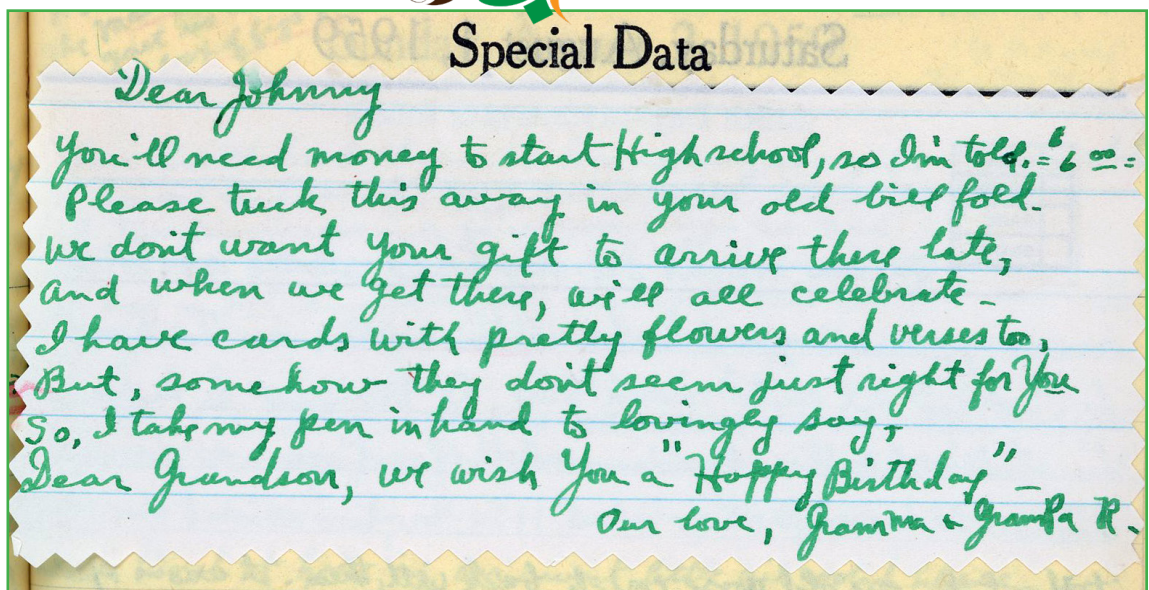 Special Data
Saturday 1959
Dear Johnny
You'll need money to start High school, so I'm told. = $6 00 =
Please tuck this away in your old bill fold.
We don't want your gift to arrive there late,
and when we get there, we'll all celebrate -
I have cards with pretty flowers and verses too,
But, somehow they don't seem just right for You
So, I take my pen in hand to lovingly say,
Dear Grandson, we wish You a "Happy Birthday" -
Our love, Gramma & Grampa R.